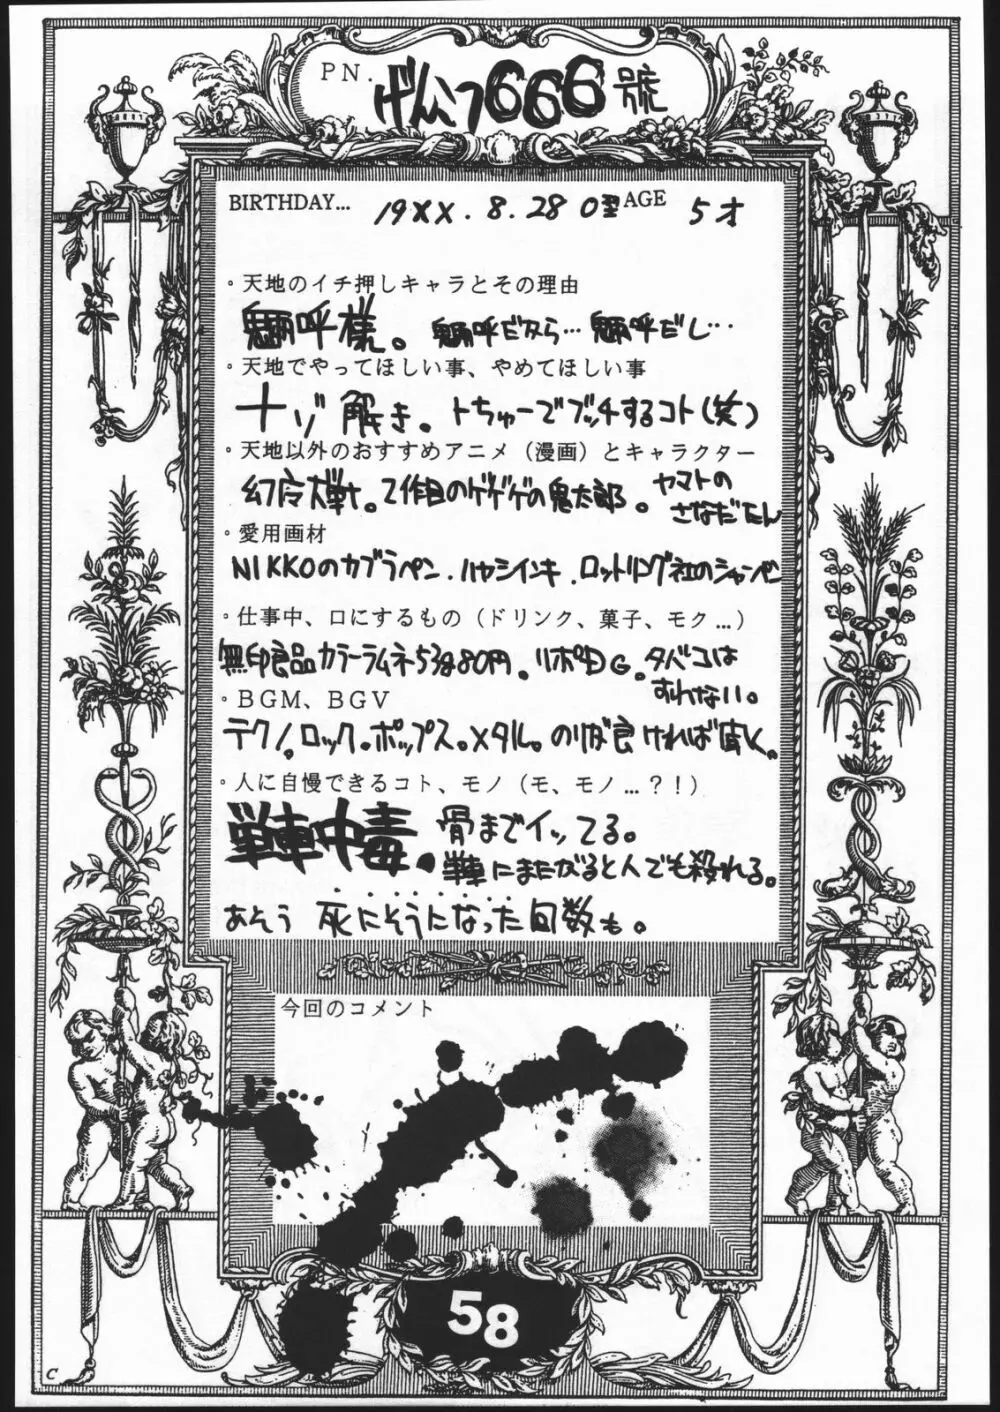 PN. げんこつ666號
BIRTHDAY... 19XX.8.28 0型 AGE 5才
・天地のイチ押しキャラとその理由
魎呼様。魎呼だから…魎呼だし…
・天地でやってほしい事、やめてほしい事
ナゾ解き。トちゅーでブッチするコト(笑)
・天地以外のおすすめアニメ（漫画）とキャラクター
幻魔大戦。2作目のゲゲゲの鬼太郎。ヤマトの
さなださん
・愛用画材
NIKKOのカブラペン.ハヤシインキ.ロットリング社のシャーペン
・仕事中、口にするもの（ドリンク、菓子、モク…）
無印良品カラーラムネ53g80円。リポD G。タバコは
すわない。
・BGM、BGV
テクノ。ロック。ポップス。メタル。のりが良ければ
・人に自慢できるコト、モノ（モ、モノ…?!）
戦車中毒。骨までイッてる。
戦車にまたがると人でも殺れる。
あそう 死にそうになった回数も。
今回のコメント
58
C